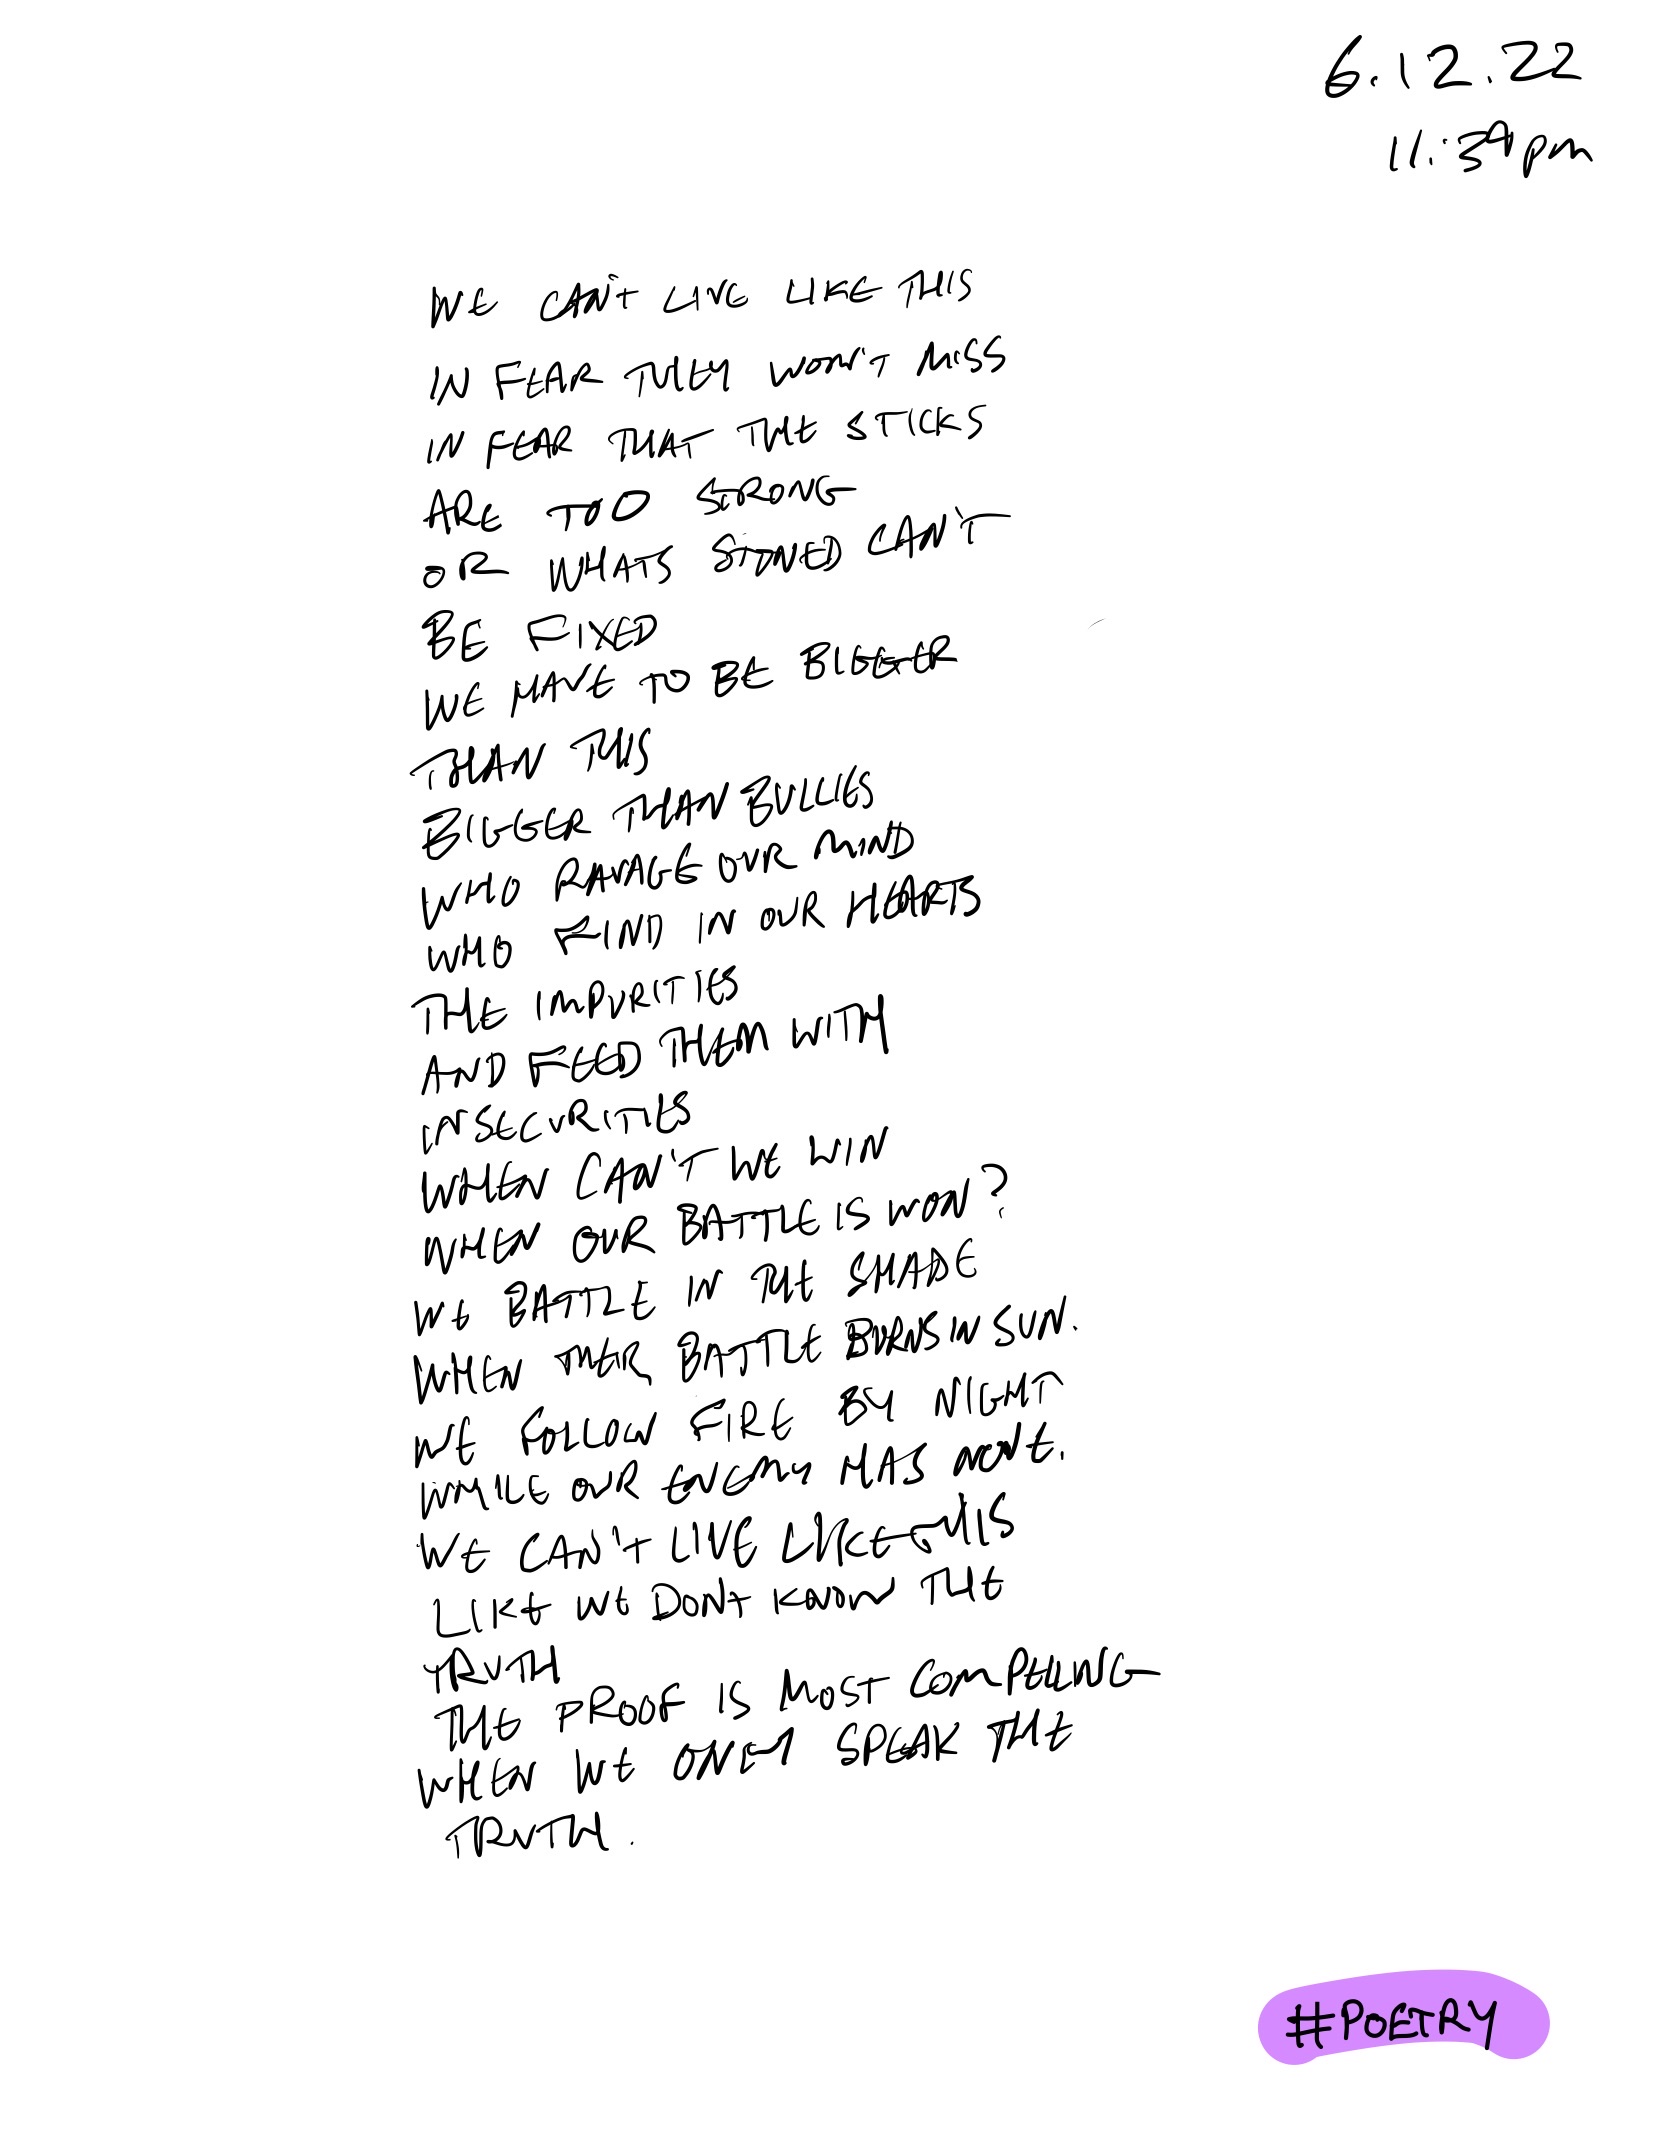 6.12.22
11:39pm
WE CAN'T LIVE LIKE THIS
IN FEAR THEY WON'T MISS
IN FEAR THAT THE STICKS
ARE TOO STRONG
OR WHATS STONED CAN'T
BE FIXED
WE HAVE TO BE BIGGER
THAN THIS
BIGGER THAN BULLIES
WHO RAVAGE OUR MIND
WHO FIND IN OUR HEARTS
THE IMPURITIES
AND FEED THEM WITH
INSECURITIES
WHEN CAN'T WE WIN
WHEN OUR BATTLE IS WON?
WE BATTLE IN THE SHADE
WHEN THEIR BATTLE BURNS IN SUN.
WE FOLLOW FIRE BY NIGHT
WHILE OUR ENEMY HAS NONE.
WE CAN'T LIVE LIKE THIS
LIKE WE DON'T KNOW THE
TRUTH
THE PROOF IS MOST COMPELLING
WHEN WE ONLY SPEAK THE
TRUTH.
#POETRY